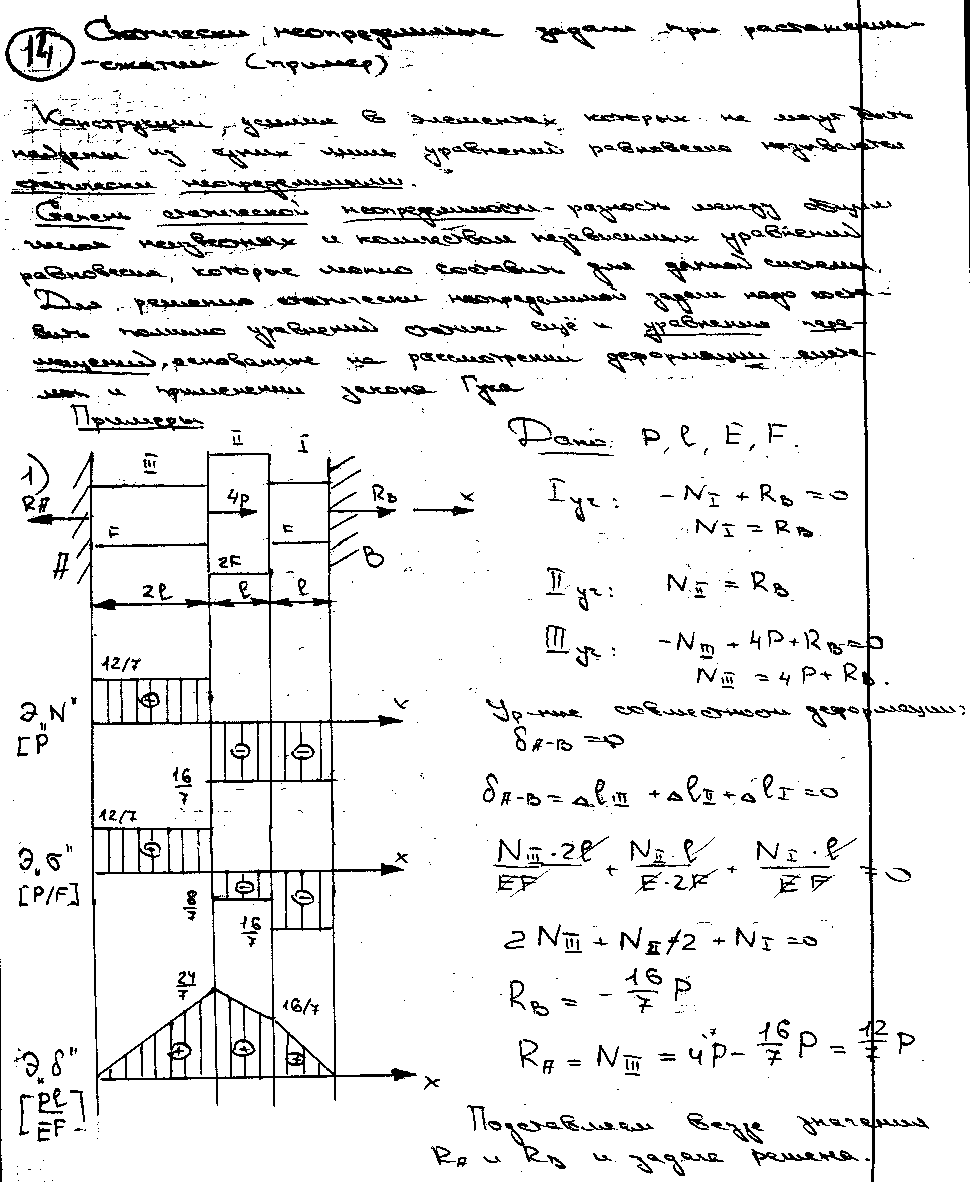 14 Статически неопределимые задачи при растяжении-
-сжатии (пример)
Конструкции, усилия в элементах которых не могут быть
найдены из одних лишь уравнений равновесия называются
статически неопределимыми.
Степень статической неопределимости - разность между общим
числом неизвестных и количеством независимых уравнений
равновесия, которые можно составить для данной системы.
Для решения статически неопределимой задачи надо соста-
вить помимо уравнений статики ещё и уравнения пере-
мещений, основанные на рассмотрении деформации систе-
мы и применении закона Гука
Примеры
Дано: P, l, E, F.
1)
III II I
RA 4P RB x
F 2F F
A B
2l l l
I уч: -N_I + R_B = 0
N_I = R_B
II уч: N_II = R_B
III уч: -N_III + 4P + R_B = 0
N_III = 4P + R_B.
Ур-ние совместности деформации:
δ_A-B = 0
δ_A-B = Δl_III + Δl_II + Δl_I = 0
N_III·2l/EF + N_II·l/E·2F + N_I·l/EF = 0
2N_III + N_II/2 + N_I = 0
R_B = - 16/7 P
R_A = N_III = 4P - 16/7 P = 12/7 P
Подставляем везде значения
R_A и R_B и задача решена.
12/7
Э„N" x
[P
16/7
12/7
Э„σ" x
[P/F]
8/7
16/7
24/7
16/7
Э„δ" x
[Pl/EF]